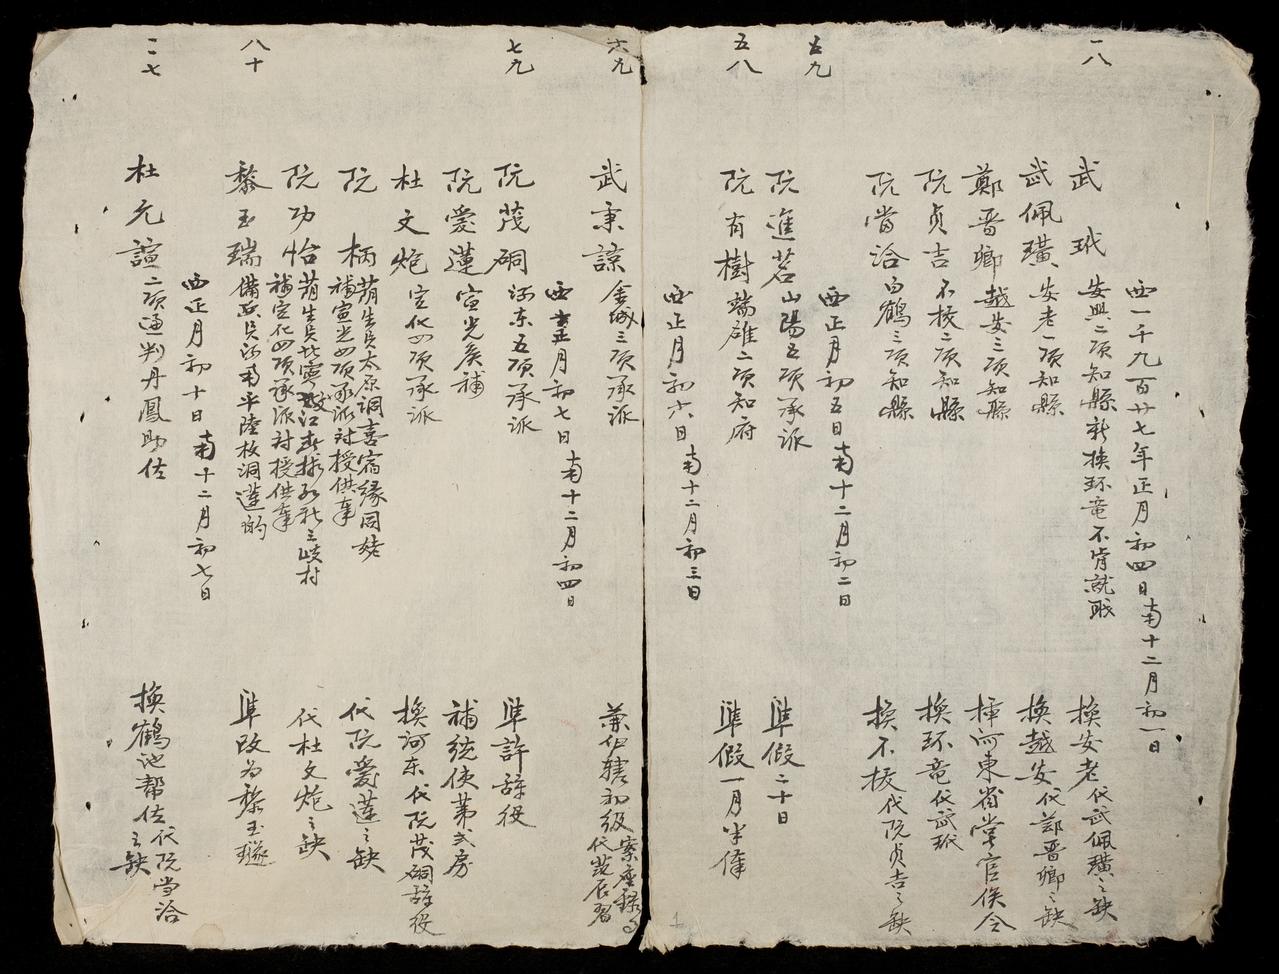 一八
西一千九百廿七年正月初四日南十二月初一日
武玳 安興二項知縣新換环竜不肯就職 換安老代武佩璜之缺
武佩璜 安老一項知縣 換越安代鄭晋卿之缺
鄭晋卿 越安三項知縣 擢河東省堂官候令
阮貞吉 不拔二項知縣 換环竜代武玳
阮當洽 白鶴三項知縣 換不拔代阮貞吉之缺
五九
西正月初五日南十二月初二日
阮進茗 山陽五項承派 準假二十日
五八
阮有樹 端雄二項知府 準假一月半俸
西正月初六日南十二月初三日
六九
武秉諒 金城三項承派 兼伊轄初級案座錄事代裴辰習
西正月初七日南十二月初四日
七九
阮茂硐 河東五項承派 準許辞役
阮愛蓮 宣光矣補 補統使第弍房
杜文炮 宣化四項承派 換河东代阮茂硐辞役
阮柄 蔭生員太原洞喜宿縁同姥
補宣光四項承派対授供事 代阮愛蓮之缺
阮功怡 蔭生員北寧江新三岐村
補宣化四項承派対授供事 代杜文炮之缺
八十
黎玉瑞 備員河南平陸枚洞蓮的 準改为黎玉璲
西正月初十日南十二月初七日
一一七
杜允諠 二項通判丹鳳助佐 換鶴池帮佐代阮當洽之缺
1